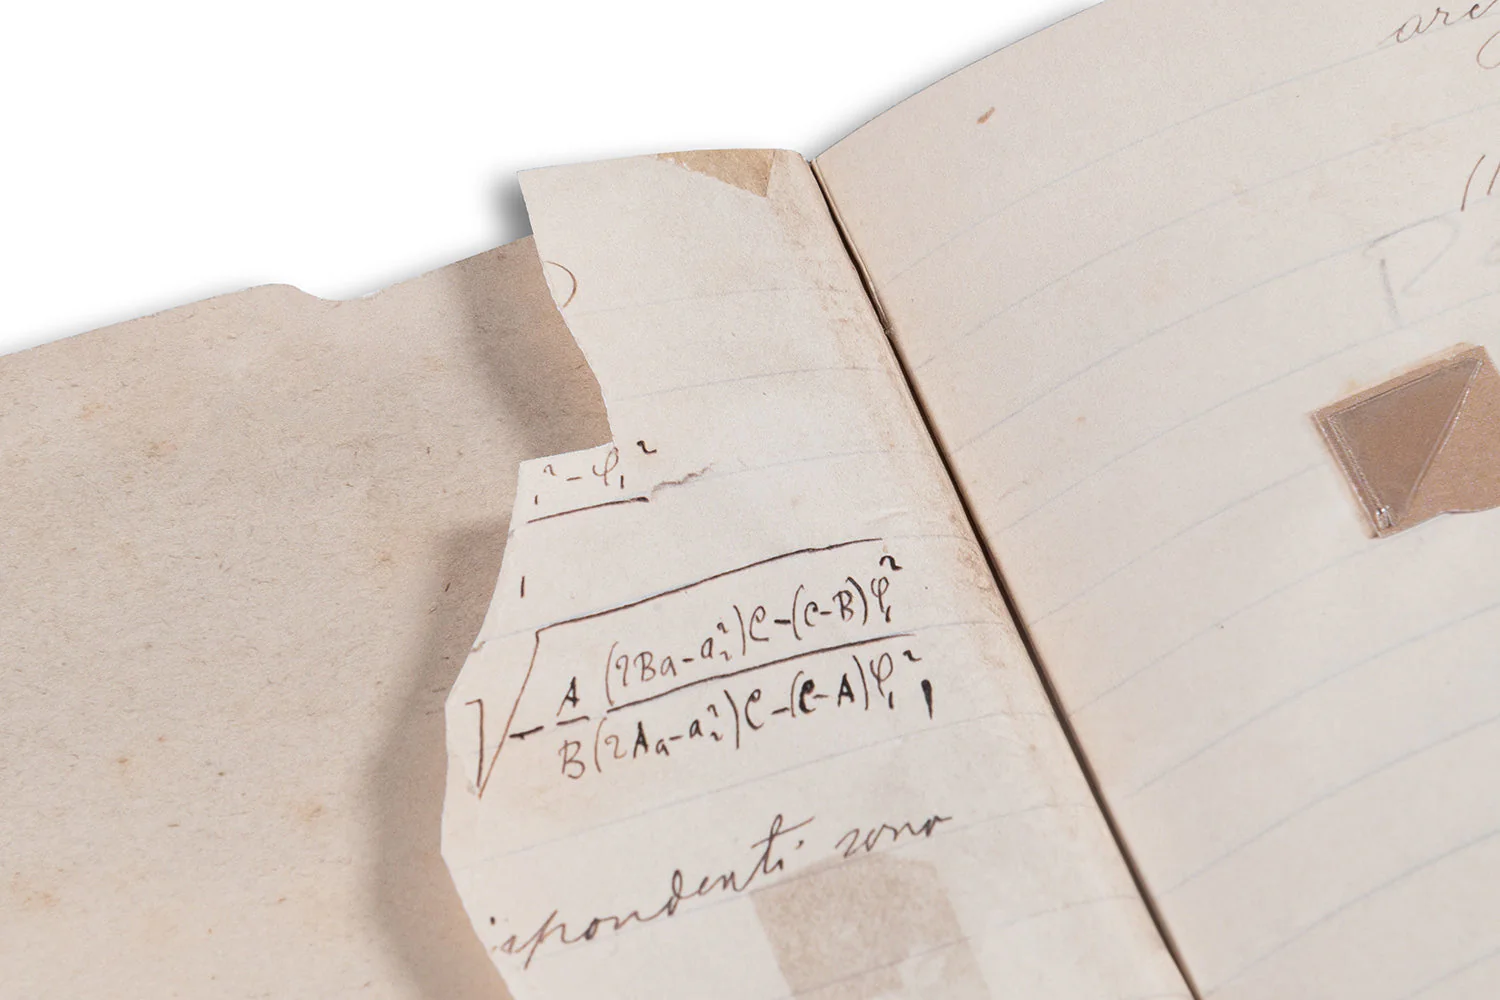 ₁² − φ₁²
√(− A/B · ((2Ba − a₁²)C − (C − B)φ₁²)/((2Aa − a₁²)C − (C − A)φ₁²)),
ispondenti sono